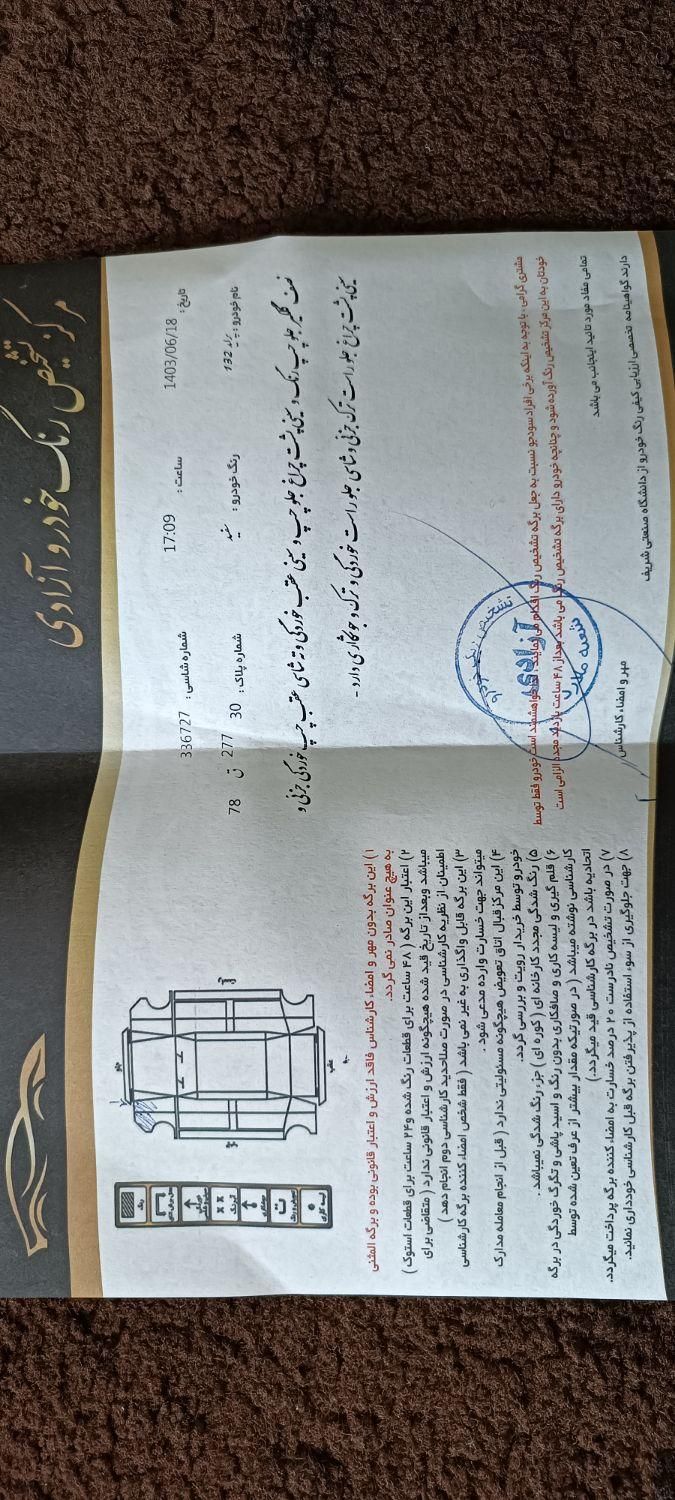 مرکز تشخیص رنگ خودرو آزادی
تاریخ : 1403/06/18
ساعت : 17:09
شماره شاسی : 336727
نام خودرو : پراید 132
رنگ خودرو : سفید
شماره پلاک : 30 277 ق 78
نصف گلگیر جلو چپ رنگ و سینی پشت چراغ جلو چپ و سینی عقب خوردگی و ته شاسی عقب چپ خوردگی جزئی و
سینی پشت چراغ جلو راست ترک جزئی و شاسی جلو راست خوردگی و ترک و جوشکاری دارد -
جلو
عقب
رنگ
۱) این برگه بدون مهر و امضاء کارشناس فاقد ارزش و اعتبار قانونی بوده و برگه المثنی
به هیچ عنوان صادر نمی گردد.
۲) اعتبار این برگه ( ۴۸ ساعت برای قطعات رنگ شده و ۲۴ ساعت برای قطعات استوک )
میباشد وبعداز تاریخ قید شده هیچگونه ارزش و اعتبار قانونی ندارد ( متقاضی برای
اطمینان از نظریه کارشناسی در صورت صلاحدید کارشناسی دوم انجام دهد )
۳) این برگه قابل واگذاری به غیر نمی باشد ( فقط شخص امضاء کننده برگه کارشناسی
میتواند جهت خسارت وارده مدعی شود .
۴) این مرکز قبال اتاق تعویض هیچگونه مسئولیتی ندارد ( قبل از انجام معامله مدارک
خودرو توسط خریدار رویت و بررسی گردد.
۵) رنگ شدگی مجدد کارخانه ای ( کوره ای ) جزء رنگ شدگی نمیباشد .
۶) قلم گیری و لیسه کاری و صافکاری بدون رنگ و اسید پاشی و تگرگ خوردگی در برگه
کارشناسی نوشته میباشد ( در صورتیکه مقدار بیشتر از عرف تعین شده توسط
اتحادیه باشد در برگه کارشناسی قید میگردد.)
۷) در صورت تشخیص نادرست ۲۰ درصد خسارت به امضاء کننده برگه پرداخت میگردد.
۸) جهت جلوگیری از سوء استفاده از پذیرفتن برگه قبل کارشناسی خودداری نمائید.
مشتری گرامی ، با توجه به اینکه برخی افراد سودجو نسبت به جعل برگه تشخیص رنگ اقدام می نمایند ، لذا خواهشمند است خودرو فقط توسط
خودتان به این مرکز تشخیص رنگ آورده شود و چنانچه خودرو دارای برگه تشخیص رنگ می باشد بعد از ۴۸ ساعت بازدید مجدد الزامی است
تشخیص رنگ خودرو
آزادی
شعبه ملارد
تمامی مفاد مورد تائید اینجانب می باشد
دارند گواهینامه تخصصی ارزیابی کیفی رنگ خودرو از دانشگاه صنعتی شریف
مهر و امضاء کارشناس